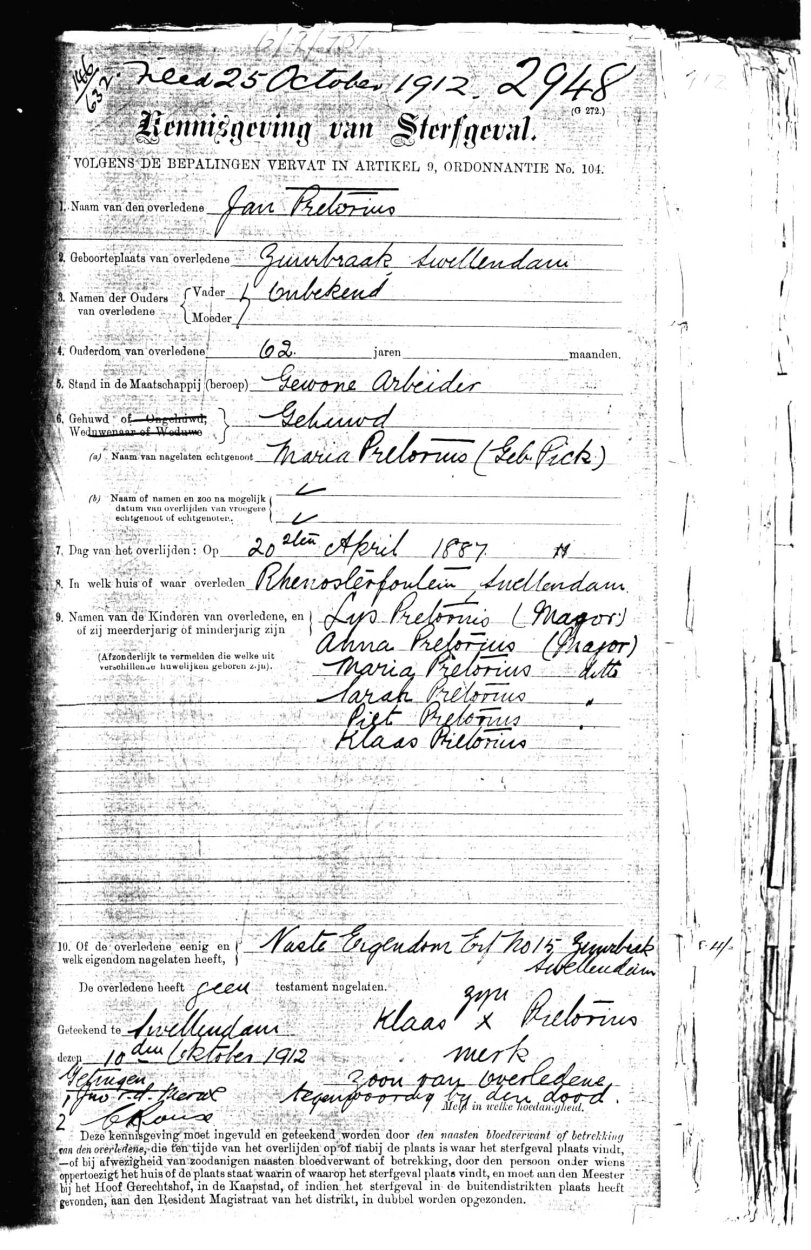 146/632. Filed 25 October 1912. 2948
(G 272.)
Kennisgeving van Sterfgeval.
VOLGENS DE BEPALINGEN VERVAT IN ARTIKEL 9, ORDONNANTIE No. 104.
1. Naam van den overledene Jan Pretorius
2. Geboorteplaats van overledene Zuurbraak, Swellendam
3. Namen der Ouders van overledene { Vader } Onbekend
{ Moeder }
4. Ouderdom van overledene 62. jaren maanden.
5. Stand in de Maatschappij (beroep) Gewone Arbeider
6. Gehuwd of Ongehuwd, Gehuwd
Weduwenaar of Weduwe
(a) Naam van nagelaten echtgenoot Maria Pretorius (Geb. Pick)
(b) Naam of namen en zoo na mogelijk
datum van overlijden van vroegere
echtgenoot of echtgenoten.
7. Dag van het overlijden: Op 20sten April 1887
8. In welk huis of waar overleden Rhenosterfontein, Swellendam
9. Namen van de Kinderen van overledene, en Lys Pretorius (Major)
of zij meerderjarig of minderjarig zijn Anna Pretorius (Major)
(Afzonderlijk te vermelden die welke uit Maria Pretorius ditto
verschillende huwelijken geboren zijn). Sarah Pretorius "
Piet Pretorius "
Klaas Pretorius
10. Of de overledene eenig en Vaste Eigendom Erf No 15 Zuurbraak
welk eigendom nagelaten heeft, Swellendam
De overledene heeft geen testament nagelaten.
zyn
Geteekend te Swellendam Klaas x Pretorius
dezen 10den Oktober 1912 merk
Getuigen zoon van Overledene
1 tegenwoordig by den dood.
2 Meld in welke hoedanigheid.
Deze kennisgeving moet ingevuld en geteekend worden door den naasten bloedverwant of betrekking
van den overledene, die ten tijde van het overlijden op of nabij de plaats is waar het sterfgeval plaats vindt,
—of bij afwezigheid van zoodanigen naasten bloedverwant of betrekking, door den persoon onder wiens
oppertoezigt het huis of de plaats staat waarin of waarop het sterfgeval plaats vindt, en moet aan den Meester
bij het Hoof Gerechtshof, in de Kaapstad, of indien het sterfgeval in de buitendistrikten plaats heeft
gevonden, aan den Resident Magistraat van het distrikt, in dubbel worden opgezonden.